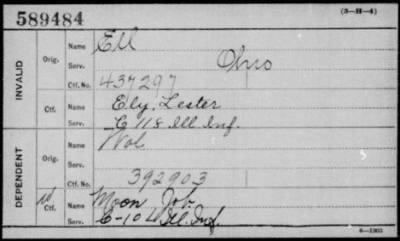 589484
(3-H-4)
INVALID
Orig.
Name Ell
Serv. Ohio
Ctf. No. 437297
Ctf.
Name Ely, Lester
Serv. C 118 Ill Inf.
DEPENDENT
Orig.
Name Wol
Serv.
Ctf. No. 392903
Ctf.
Name Moon Job
Serv. E-104 Ill. Inf.
6-1903